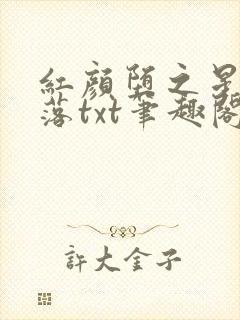 紅顏堕之星
落txt筆趣閣
許大金子